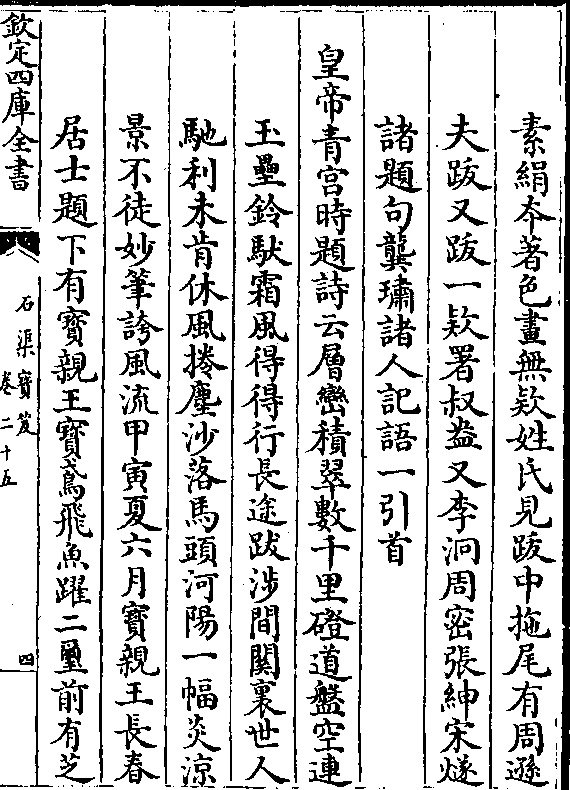 素絹夲著色畫無欵姓氏見跋中拖尾有周遜
夫跋又跋一欵署叔盎又李泂周密張紳宋燧
諸題句龔璛諸人記語一引首
皇帝青宫時題詩云層巒積翠數千里磴道盤空連
玉壘鈴馱霜風得得行長途跋涉間闗裏世人
馳利未肯休風捲塵沙落馬頭河陽一幅炎涼
景不徒妙筆誇風流甲寅夏六月寳親王長春
居士題下有寳親王寳鳶飛魚躍二璽前有芝
欽定四庫全書
石渠寳笈
卷二十五
四